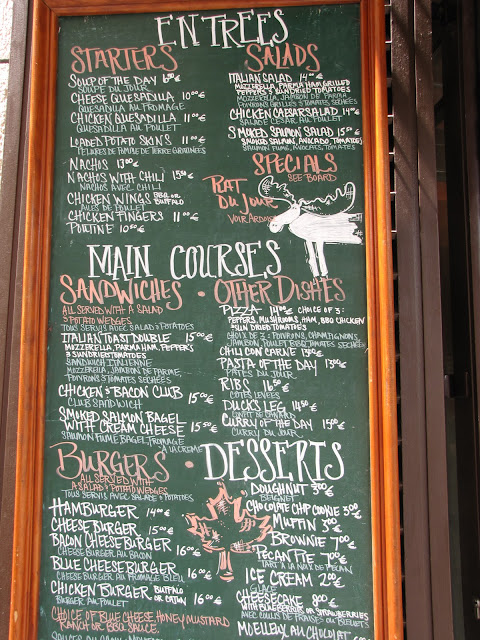 ENTREES
STARTERS
SOUP OF THE DAY 6.00 €
SOUPE DU JOUR
CHEESE QUESADILLA 10.00 €
QUESADILLA AU FROMAGE
CHICKEN QUESADILLA 11.00 €
QUESADILLA AU POULET
LOADED POTATO SKINS 11.00 €
PELURES DE POMME DE TERRE GRATINEES
NACHOS 13.00 €
NACHOS WITH CHILI 15.50 €
NACHOS AVEC CHILI
CHICKEN WINGS BBQ OR BUFFALO
AILES DE POULET
CHICKEN FINGERS 11.00 €
POUTINE 10.50 €
SALADS
ITALIAN SALAD 14.00 €
MOZZERELLA, PARMA HAM, GRILLED
PEPPERS & SUNDRIED TOMATOES
MOZZERELLA, JAMBON DE PARMA,
POIVRONS GRILLES & TOMATES SECHEES
CHICKEN CAESAR SALAD 14.00 €
SALADE CESAR AU POULET
SMOKED SALMON SALAD 15.00 €
SMOKED SALMON, AVOCADO, TOMATOES
SAUMON FUME, AVOCATS, TOMATES
SPECIALS
SEE BOARD
PLAT
DU JOUR
VOIR ARDOISE
MAIN COURSES
SANDWICHES
ALL SERVED WITH A SALAD
& POTATO WEDGES
TOUS SERVIS AVEC SALAD & POTATOES
ITALIAN TOAST DOUBLE 15.00 €
MOZZERELLA, PARMA HAM, PEPPERS
& SUNDRIED TOMATOES
SANDWICH ITALIENNE
MOZZERELLA, JAMBON DE PARME,
POIVRONS & TOMATES SECHEES
CHICKEN & BACON CLUB 15.00 €
CLUB SANDWICH
SMOKED SALMON BAGEL
WITH CREAM CHEESE 15.50 €
SAUMON FUME BAGEL, FROMAGE
A LA CREME
• OTHER DISHES
PIZZA 14.00 € CHOICE OF 3:
PEPPERS, MUSHROOMS, HAM, BBQ CHICKEN
& SUN DRIED TOMATOES
CHOIX DE 3: POIVRONS, CHAMPIGNONS,
JAMBON, POULET BBQ, TOMATES SECHEES
CHILI CON CARNE 13.50 €
PASTA OF THE DAY 13.00 €
PATES DU JOUR
RIBS 16.50 €
COTES LEVEES
DUCK'S LEG 14.50 €
CONFIT DE CANARD
CURRY OF THE DAY 15.00 €
CURRY DU JOUR
BURGERS •
ALL SERVED WITH
A SALAD & POTATO WEDGES
TOUS SERVIS AVEC SALADE & POTATOES
HAMBURGER 14.00 €
CHEESE BURGER 15.00 €
BACON CHEESE BURGER 16.00 €
CHEESE BURGER AU BACON
BLUE CHEESE BURGER 16.00 €
CHEESE BURGER AU FROMAGE BLEU
CHICKEN BURGER BUFFALO OR CAJUN 16.00 €
BURGER AU POULET
CHOICE OF BLUE CHEESE, HONEY MUSTARD
RANCH OR BBQ SAUCE
DESSERTS
DOUGHNUT 3.00 €
BEIGNET
CHOCOLATE CHIP COOKIE 3.00 €
MUFFIN 3.00 €
BROWNIE 7.00 €
PECAN TIE 7.00 €
TART A LA NOIX DE PECAN
ICE CREAM 2.00 €
GLACE
CHEESECAKE 8.00 €
WITH BLUEBERRIES OR STRAWBERRIES
AVEC COULIS DE FRAISES OU BLEUETS
MOELLEUX AU CHOCOLAT